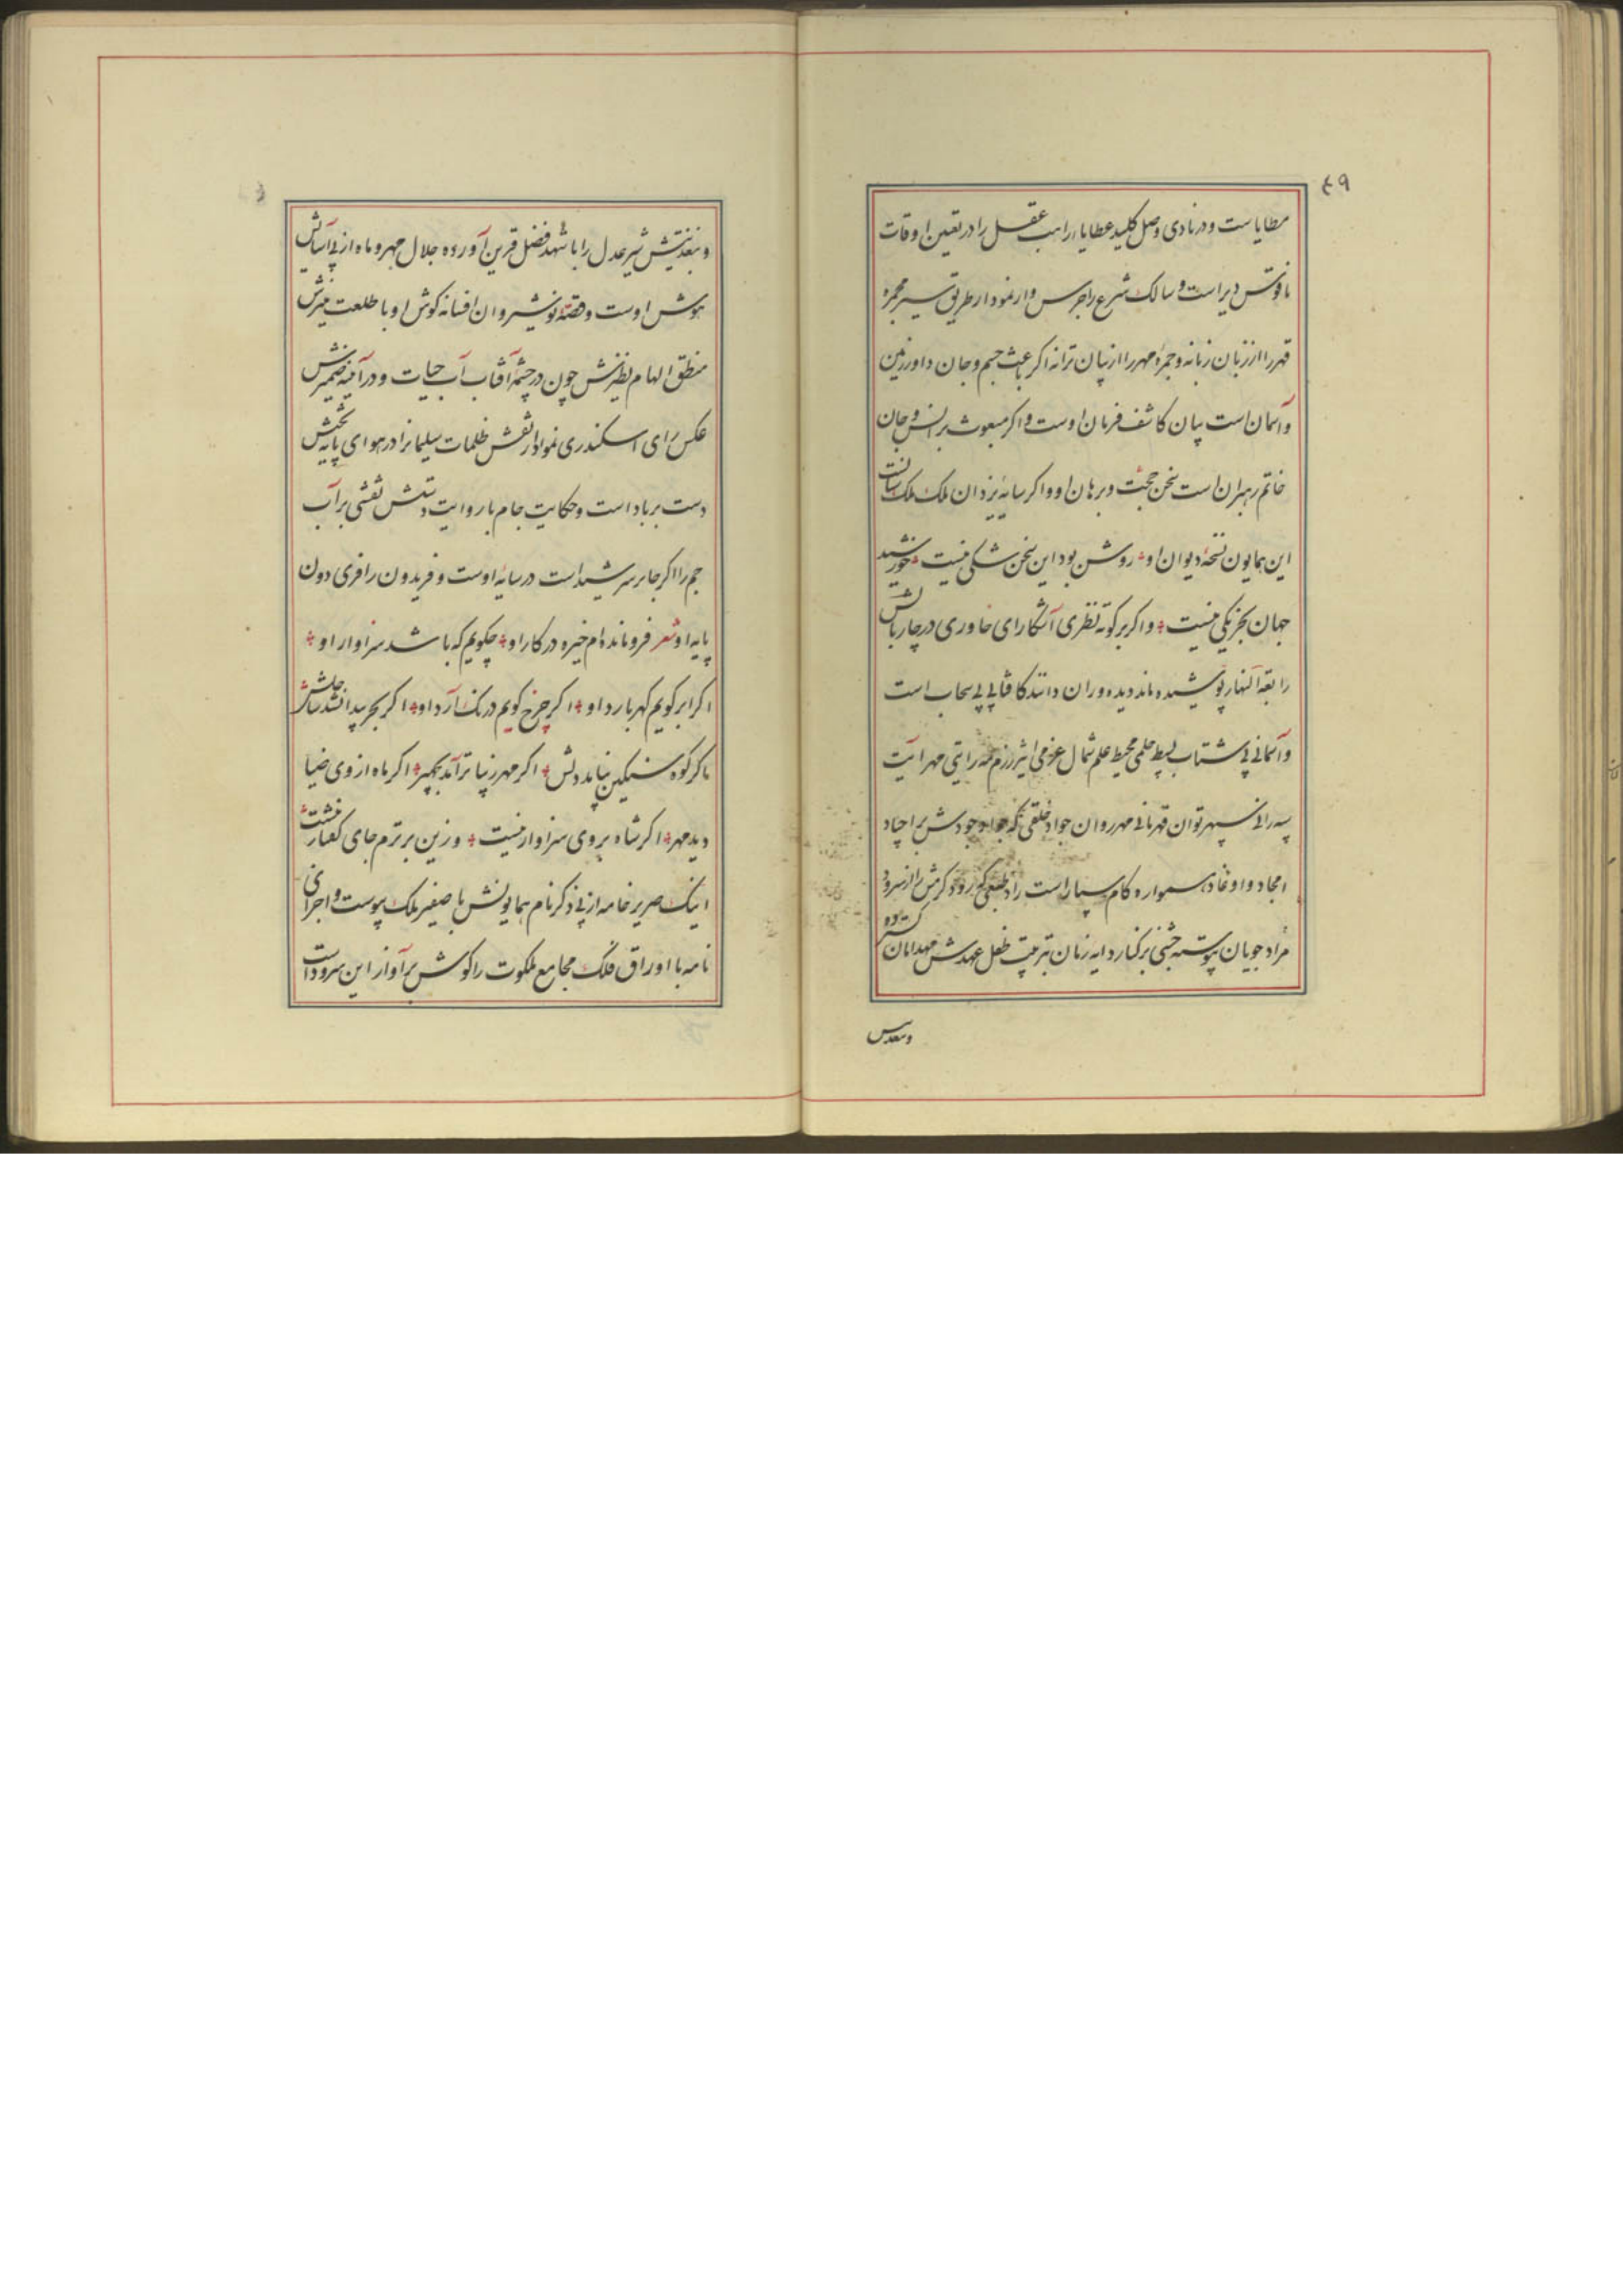 ۴۹
مطایاست و در نادی وصل کلید عطایا، راهب عقل را در تعین اوقات
ناقوس دیر است و سالک شرع را جرس وار نمودار طریق سیر مجره
قهر را از زبان زبانه و جمره مهر را از بیان ترانه اکر باعث جسم و جان داور زمین
و آسمان است بیان کاشف فرمان اوست و اکر مبعوث بر انس و جان
خاتم رهبران است سخن حجت و برهان او و اکر سایه یزدان ملک ملک ستانست
این همایون نسخهٔ دیوان او روشن بود این سخن شکی نیست خورشید
جهان بجز یکی نیست و اکر بر کوته نظری آشکارا رای خاوری در چار بالش
رابعة النهار پوشیده ماند دیده وران دانند کافتابی بی سحاب است
و آسمانی بی شتاب بسیط حلمی محیط علم شمال عزمی اثیر رزم مه رایتی مهر آیت
سپه رانی سپهر توان قهرمانی مهر روان جواد خلقی که جواد جودش بر اجیاد
امجاد و اوغاد همواره کام سپار است راد طبعی که رود کرمش را از سرود
مراد جویان پیوسته جشنی بر کنار دایه زمان بتربیت طفل عهدش مهد امان کسترده
و بنعدیتش شیر عدل را با شهد فضل قرین آورده جلال مهر و ماه از پی آسایش
هوش اوست و قصهٔ نوشیروان افسانه کوش او با طلعت
منطق الهام نظیرش چون در چشمه آفتاب آب حیات و در آمینه ضمیرش
عکس رای اسکندری نمودار نقش ظلمات سلیمانرا در هوای پایه تختش
دست بر باد است و حکایت جام با روایت دستش نقشی بر آب
جم را اکر جا بر سر شید است در سایهٔ اوست و فریدون را فری دون
پایه او شعر فرو مانده‌ام خیره در کار او چکویم که باشد سزاوار او
اکر ابر کویم کهر بارد او اکر چرخ کویم درنک آرد او اکر بحر پیدا نشد ساحلش
ماکر کوه سنکین نیابد دلش اکر مهر زیبا تر آمد بچهر اکر ماه از وی ضیا
دید مهر اکر شاه بروی سزاوار نیست وزین برترم جای کفتار نیست
اینک صریر خامه از پی ذکر نام همایونش با صفیر ملک پیوست و اجزای
نامه با اوراق فلک مجامع ملکوت را کوش بر آواز این سرود است